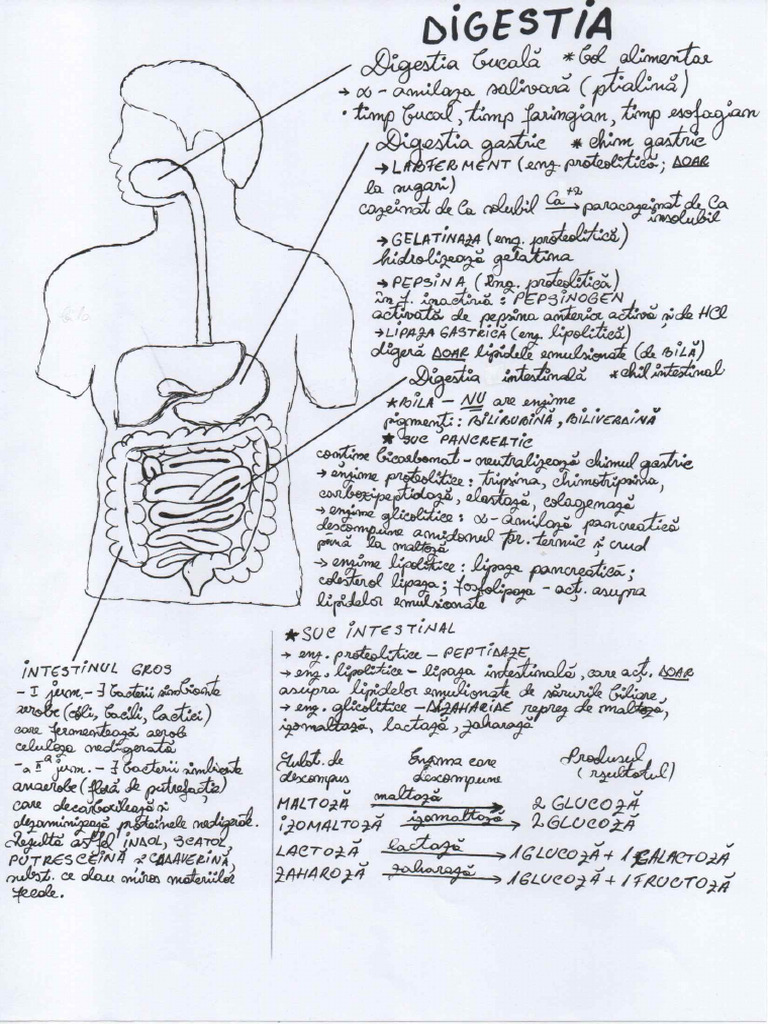 DIGESTIA
Digestia bucală * bol alimentar
→ α-amilaza salivară (ptialină)
• timp bucal, timp faringian, timp esofagian
Digestia gastric * chim gastric
→ LABFERMENT (enz. proteolitică; DOAR
la sugari)
cazeinat de Ca solubil Ca+2→ paracazeinat de Ca
insolubil
→ GELATINAZA (enz. proteolitică)
hidrolizează gelatina
→ PEPSINA (enz. proteolitică)
în f. inactivă: PEPSINOGEN
activată de pepsina anterior activă și de HCl
→ LIPAZA GASTRICĂ (enz. lipolitică)
digeră DOAR lipidele emulsionate (de BILĂ)
Digestia intestinală * chil intestinal
* BILA - NU are enzime
pigmenți: BILIRUBINĂ, BILIVERDINĂ
★ SUC PANCREATIC
conține bicarbonat - neutralizează chimul gastric
→ enzime proteolitice: tripsina, chimotripsina,
carboxipeptidază, elastază, colagenază
→ enzime glicolitice: α-amilază pancreatică
descompune amidonul pr. termic și crud
până la maltoză
→ enzime lipolitice: lipaza pancreatică;
colesterol lipaza; fosfolipaza - acț. asupra
lipidelor emulsionate
★ SUC INTESTINAL
→ enz. proteolitice - PEPTIDAZE
→ enz. lipolitice - lipaza intestinală, care acț. DOAR
asupra lipidelor emulionate de sărurile biliare
→ enz. glicolitice - DIZAHARIDE reprez de maltoză,
izomaltază, lactază, zaharază
Subst. de Enzima care Produsul
descompus descompune (rzultatul)
MALTOZĂ maltoză→ 2 GLUCOZĂ
IZOMALTOZĂ izomaltoză→ 2 GLUCOZĂ
LACTOZĂ lactază→ 1 GLUCOZĂ + 1 GALACTOZĂ
ZAHAROZĂ zaharază→ 1 GLUCOZĂ + 1 FRUCTOZĂ
INTESTINUL GROS
- I jum. - ∃ bacterii simbionte
aerobe (coli, bacili, lactici)
care fermentează aerob
celuloza nedigerată
- a IIa jum. - ∃ bacterii simbionte
anaerobe (floră de putrefacție)
care decarboxilează și
dezaminizează proteinele nedigerate.
Rezultă astfel INDOL, SCATOL,
PUTRESCEINĂ și CADAVERINĂ,
subst. ce dau miros materiilor
fecale.